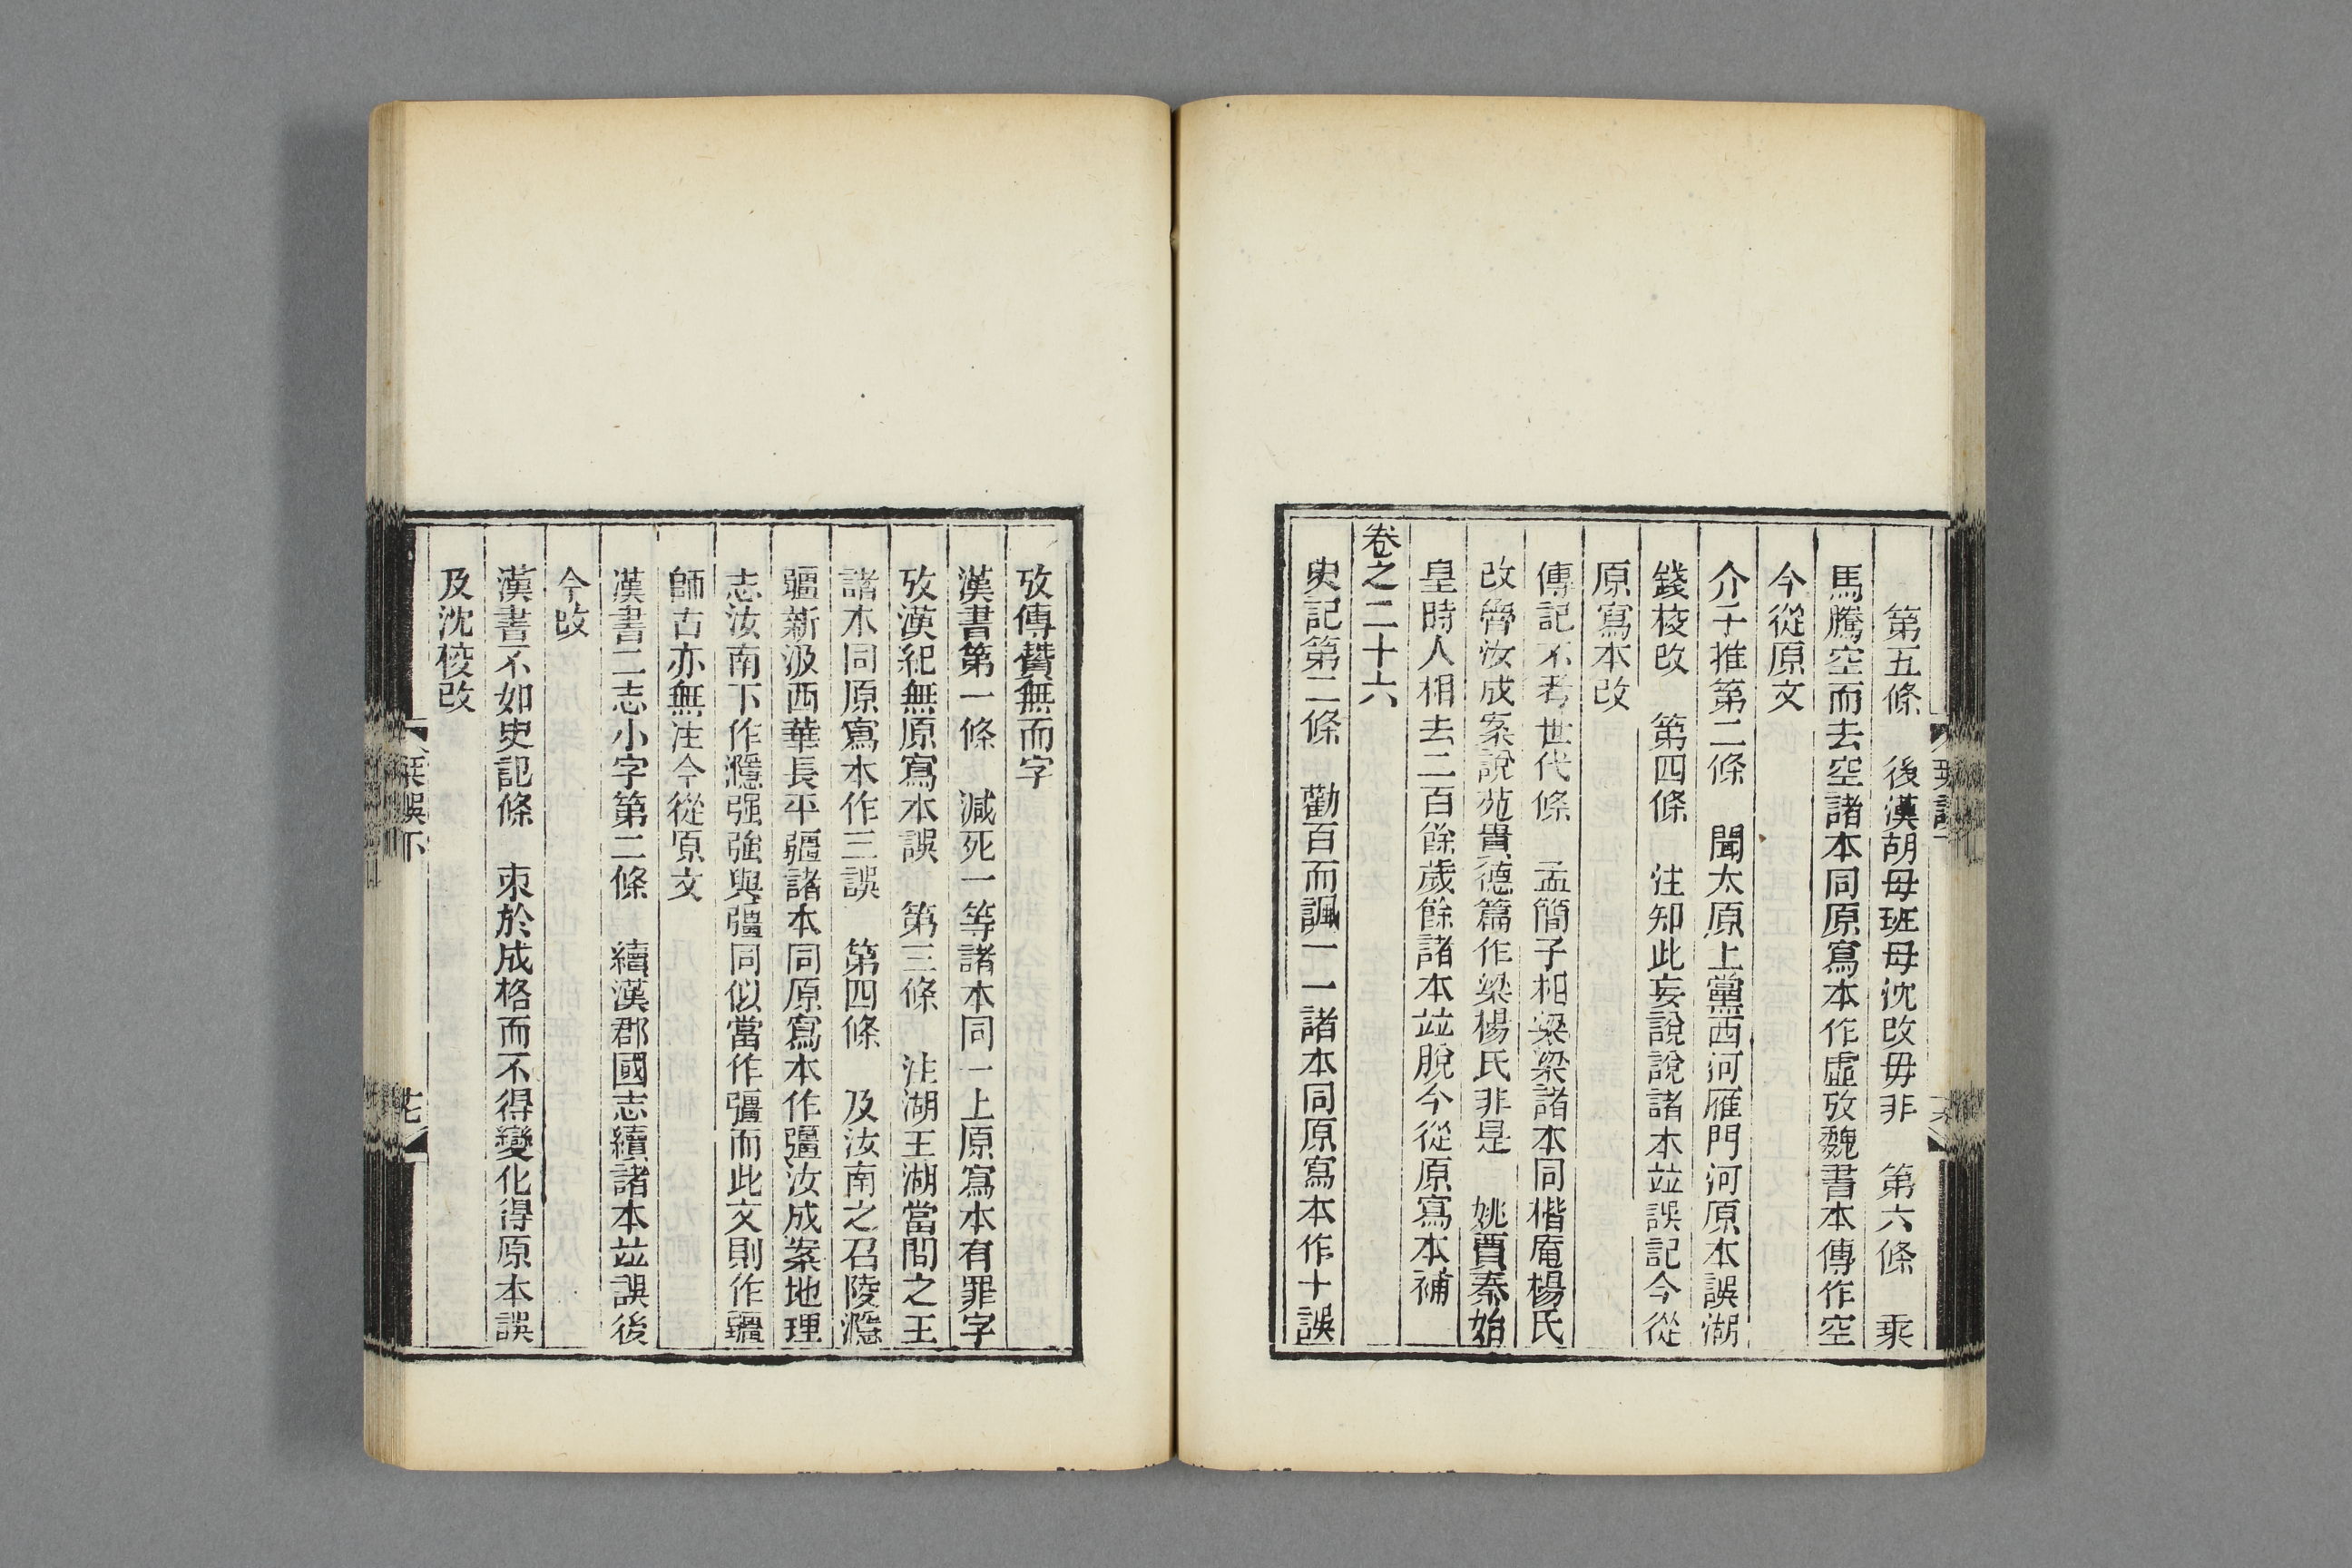 第五條　後漢胡母班母沈改毋非　第六條　乘
馬騰空而去空諸本同原寫本作虛攷魏書本傳作空
今從原文
介子推第二條　聞太原上黨西河雁門河原本誤湖
錢校改　第四條　注知此妄說說諸本竝誤記今從
原寫本改
傳記不考世代條　孟簡子相梁梁諸本同楷庵楊氏
改齊汝成案說苑貴德篇作梁楊氏非是　姚賈秦始
皇時人相去二百餘歲餘諸本竝脫今從原寫本補
卷之二十六
史記第二條　勸百而諷一一諸本同原寫本作十誤
攷傳贊無而字
漢書第一條　減死一等諸本同一上原寫本有罪字
攷漢紀無原寫本誤　第三條　注湖王湖當閻之王
諸本同原寫本作三誤　第四條　及汝南之召陵濦
彊新汲西華長平彊諸本同原寫本作彊汝成案地理
志汝南下作濦强強與彊同似當作彊而此文則作疆
師古亦無注今從原文
漢書二志小字第二條　續漢郡國志續諸本竝誤後
今改
漢書不如史記條　朿於成格而不得變化得原本誤
及沈校改
栞誤下